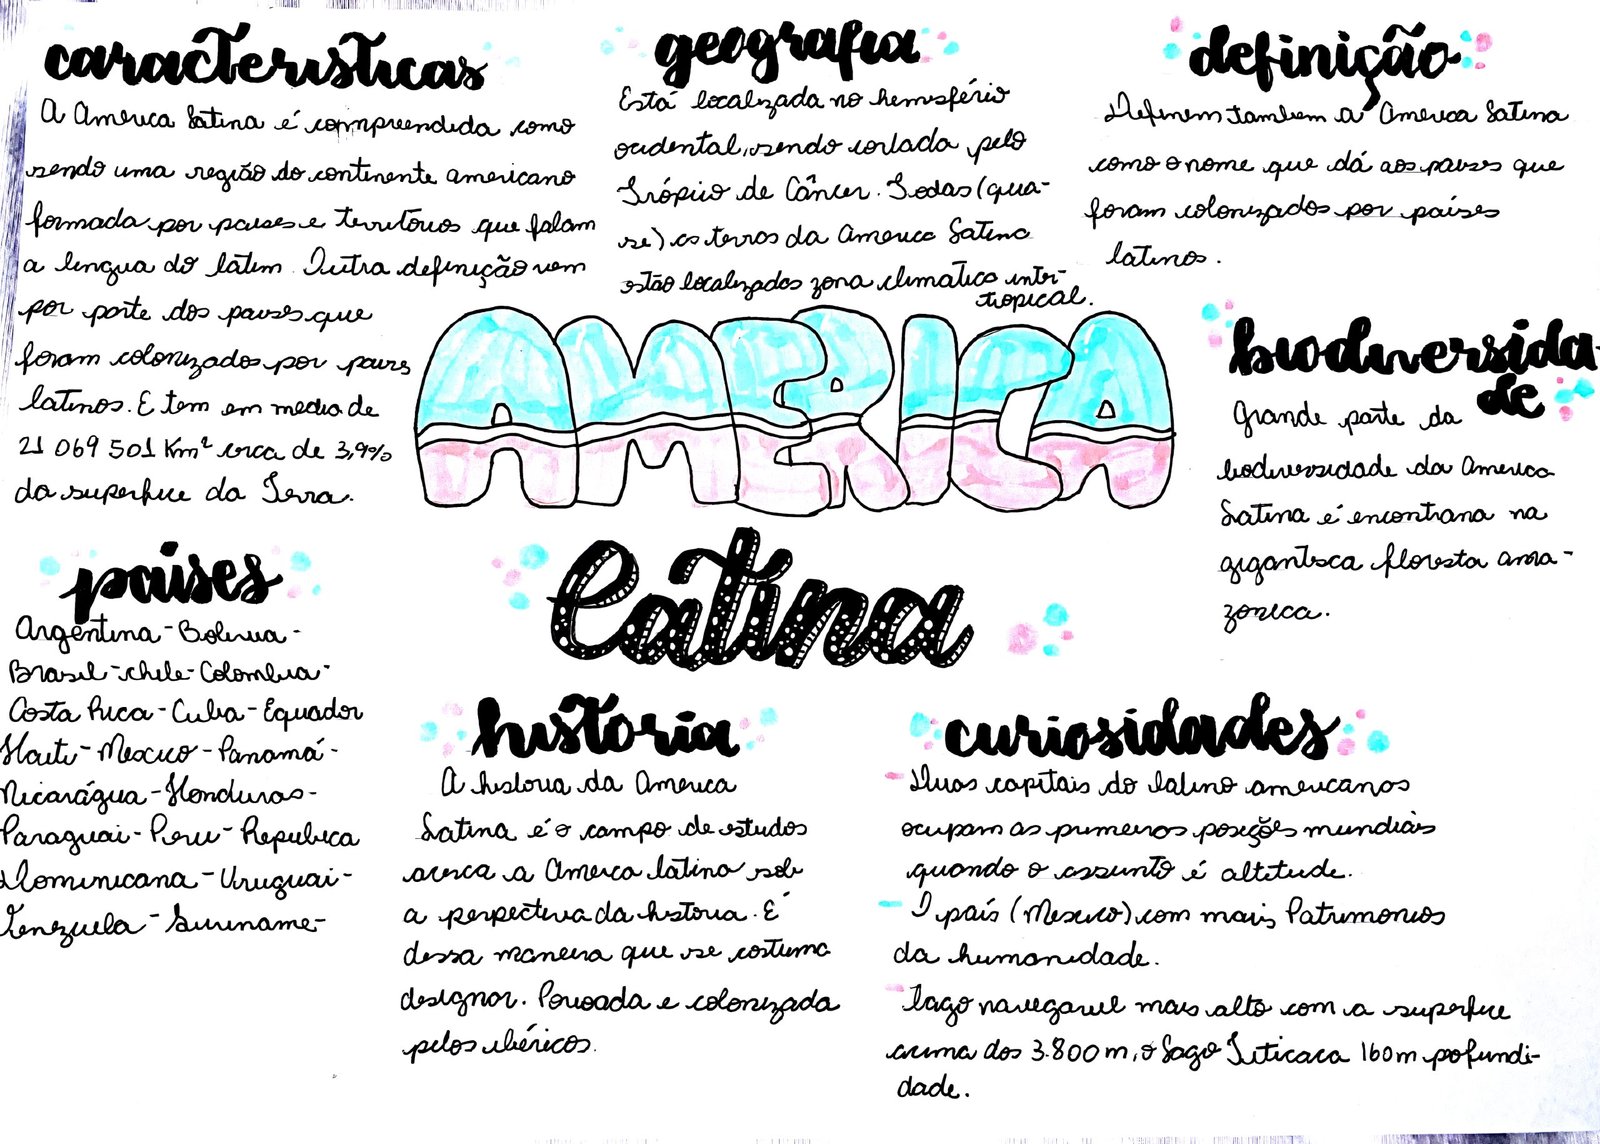 caracteristicas
A America Latina é compreendida como
sendo uma região do continente americano
formada por paises e territórios que falam
a lingua do latim. Outra definição vem
por parte dos paises que
foram colonizados por paires
latinos. E tem em media de
21 069 501 Km² cerca de 3,9%
da superfice da Terra.
geografia
Está localizada no hemisfério
ocidental, sendo cortada pelo
Trópico de Câncer. Todas (qua-
se) as terras da America Latina
estão localizadas zona climatica inter-
tropical.
definição
Definem tambem a America Latina
como o nome que dá aos paises que
foram colonizados por países
latinos.
AMERICA
latina
biodiversida-
de
Grande parte da
biodiversidade da America
Latina é encontrana na
gigantisca floresta ama-
zonica.
países
Argentina - Bolivia -
Brasil - chile - Colombia -
Costa Rica - Cuba - Equador
Haiti - Mexico - Panamá -
Nicarágua - Honduras -
Paraguai - Peru - Republica
Dominicana - Uruguai -
Venezuela - Suriname -
historia
A historia da America
Latina é o campo de estudos
acerca a America latina sob
a perpectiva da historia. É
dessa maneira que se costuma
designar. Povoada e colonizada
pelos ibéricos.
curiosidades
- Duas capitais do latino americanos
ocupam as primeiros posições mundiais
quando o assunto é altitude.
- O país (Mexico) com mais Patrimonios
da humanidade.
- Lago navegavel mais alto com a superfice
acima dos 3.800 m, o Lago Titicaca 160m pofundi-
dade.